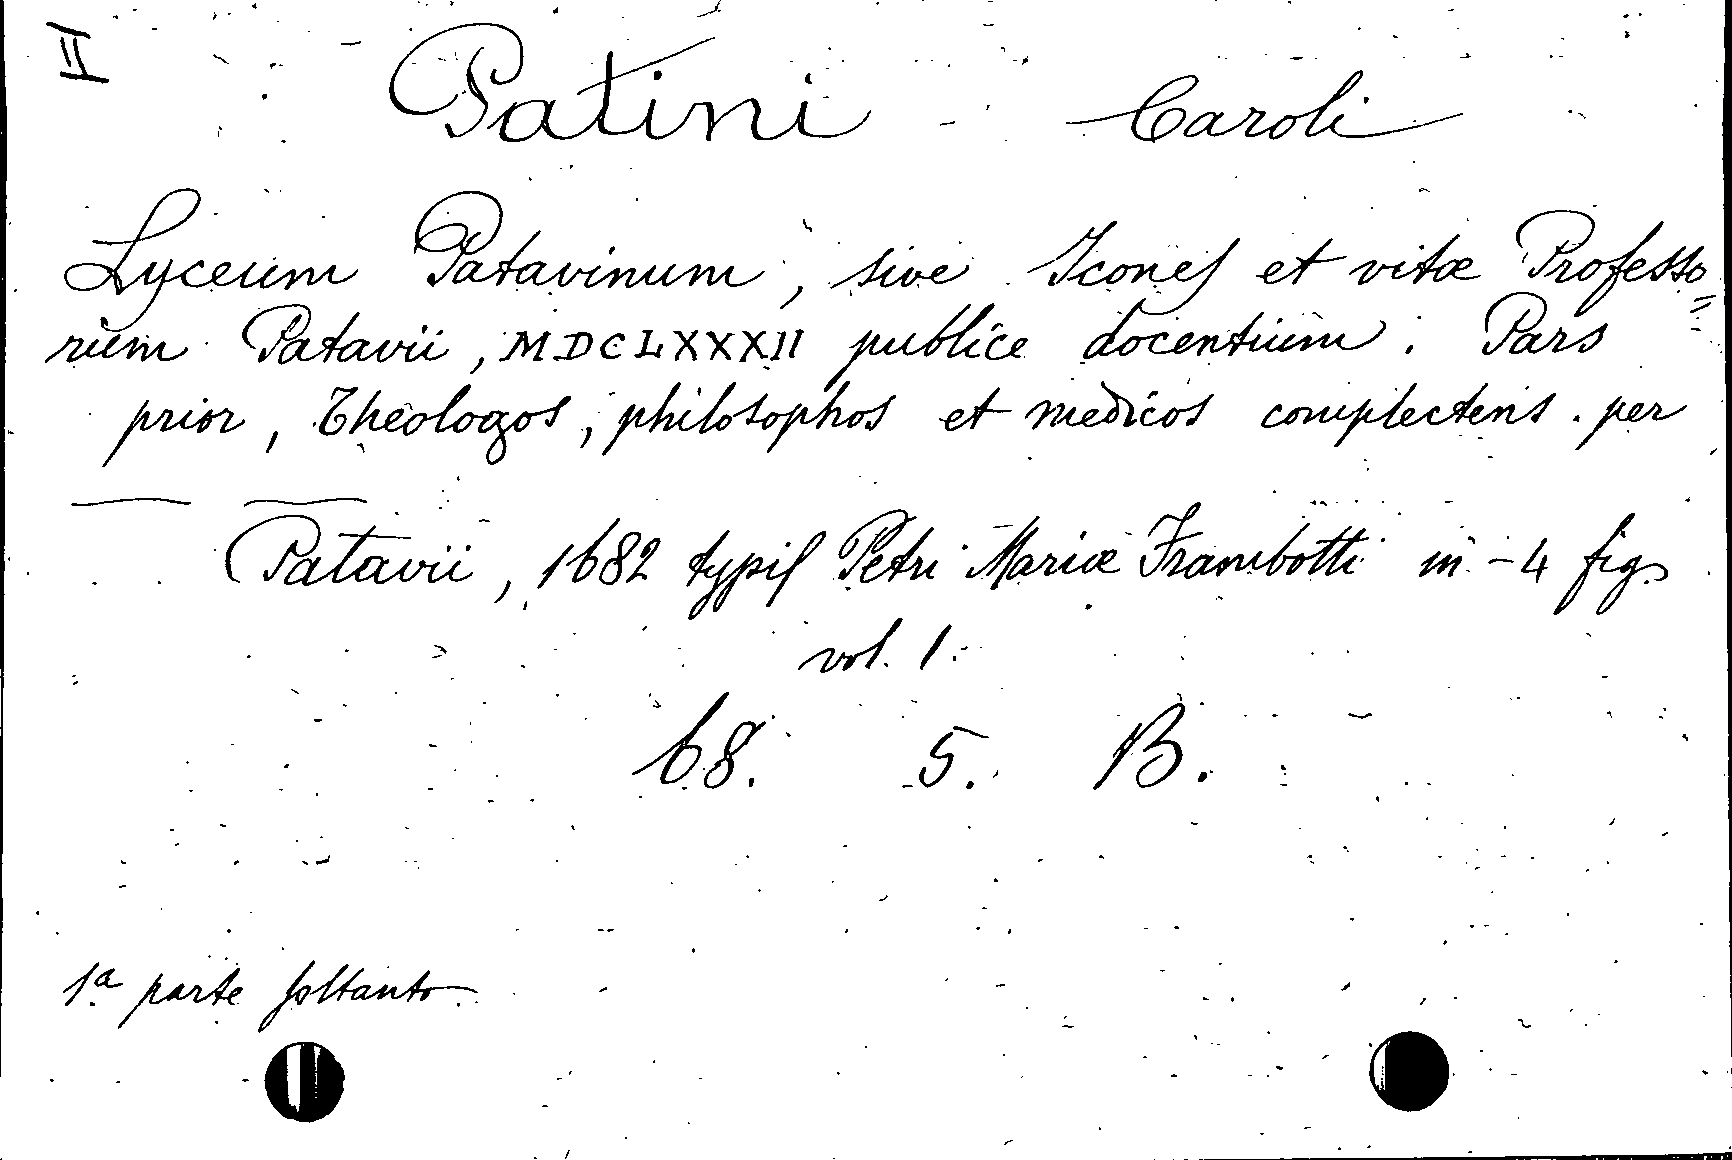 II
Patini Caroli
Lyceum Patavinum, sive Icones et vitæ Professo=
rum Patavii, MDCLXXXII publice docentium. Pars
prior, Theologos, philosophos et medicos complectens. per
— —
Patavii, 1682 typis Petri Mariæ Frambotti in-4 fig.
vol. 1.
68. 5. B.
1.a parte soltanto